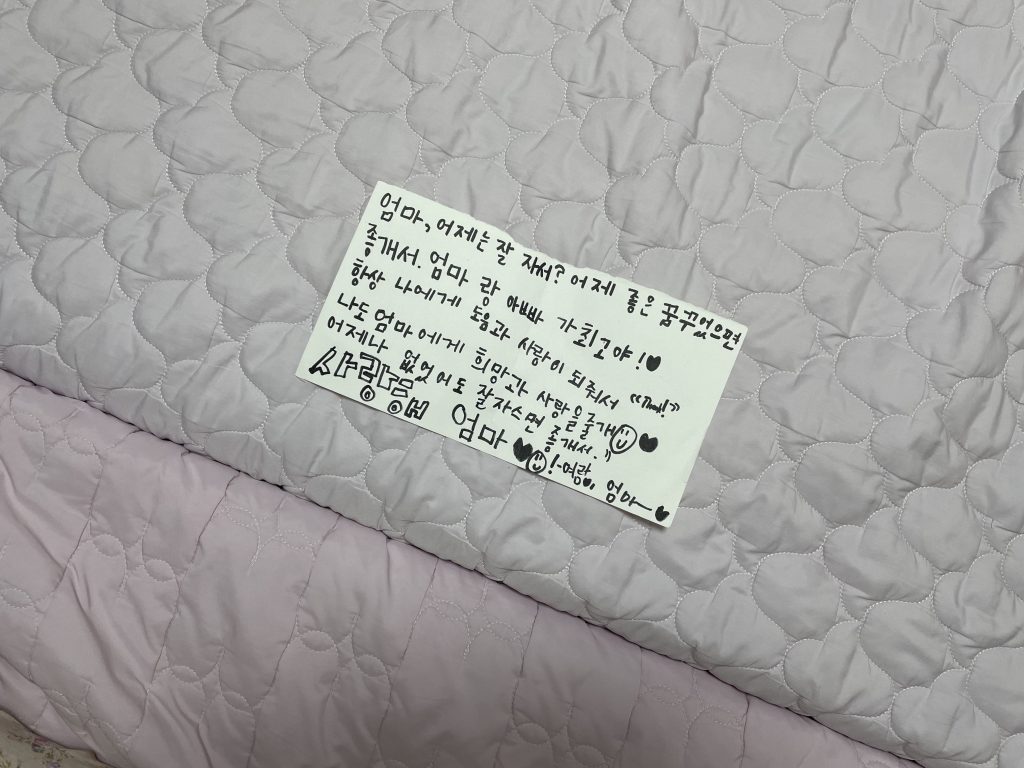 엄마, 어제는 잘 자서? 어제 좋은 꿈꾸었으면
좋개서. 엄마 랑 아빠가 최고야!♥
항상 나에게 도움과 사랑이 되줘서
나도 엄마에게 희망과 사랑을줄개☺♥
어제나 없었어도 잘자스면 좋개서."
사랑해 엄마 ♥☺ 엄마~♥